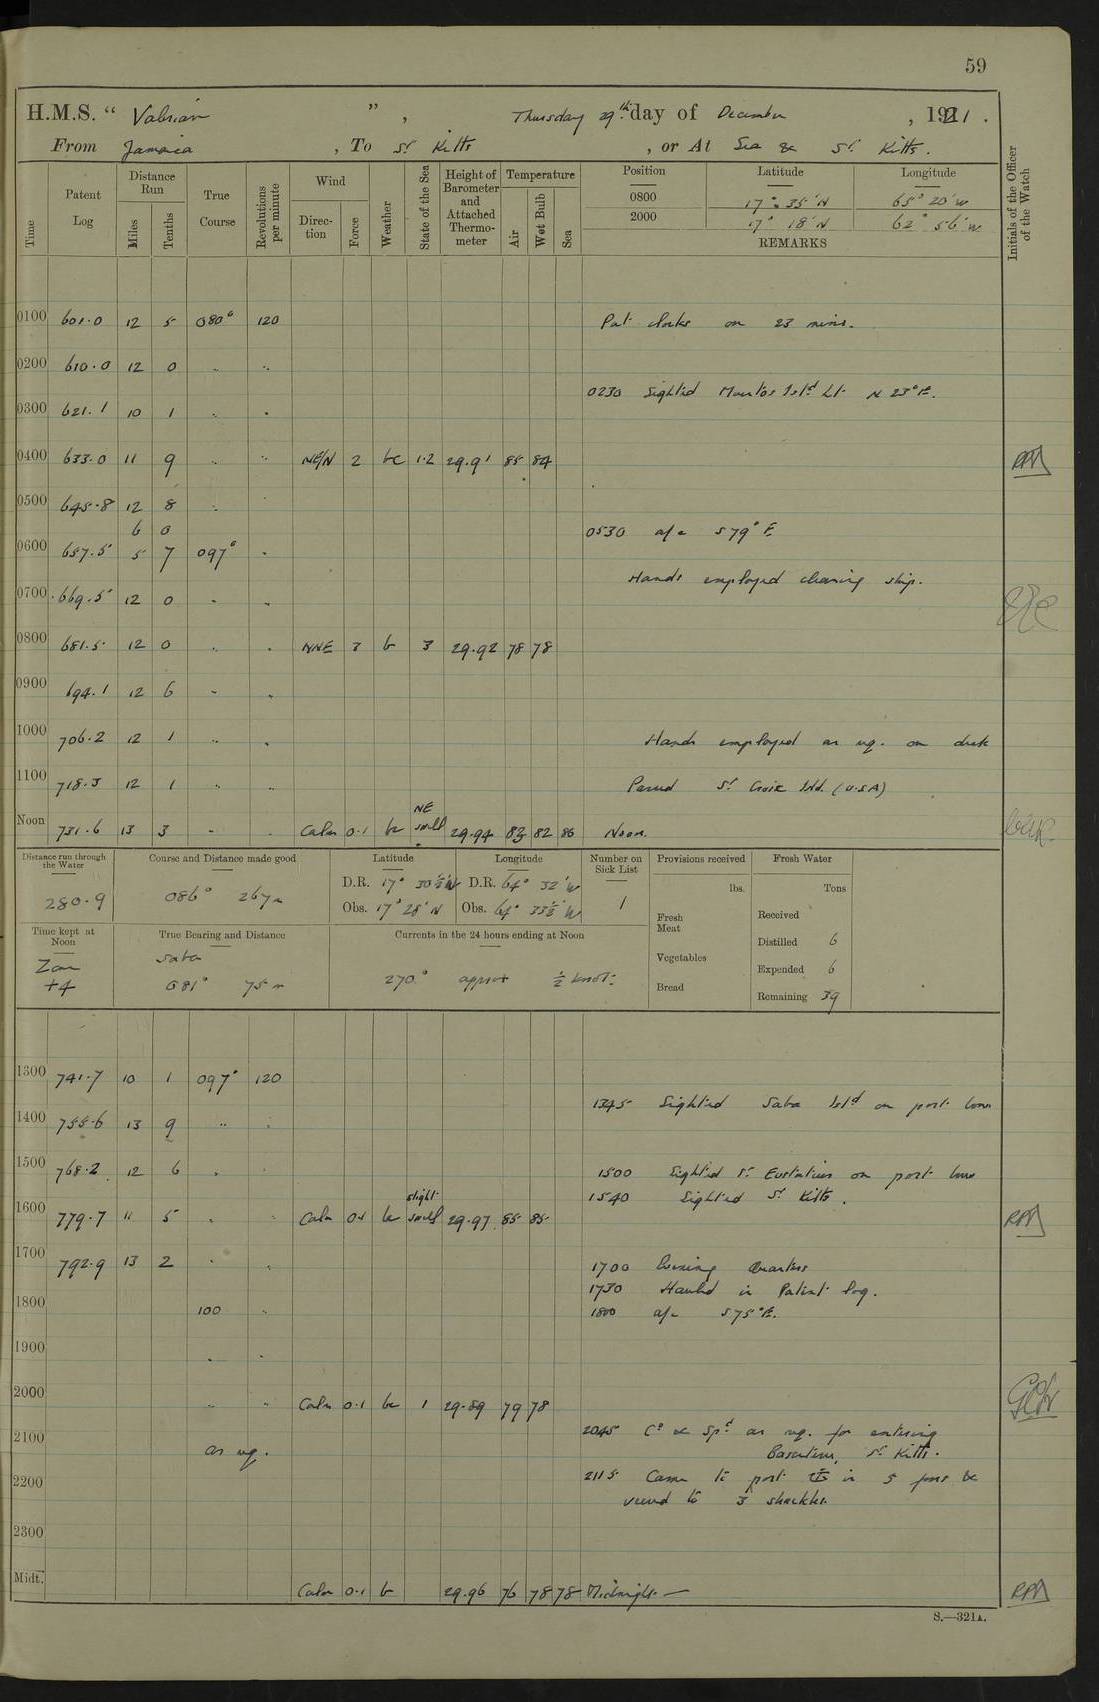 59
H.M.S. “ Valerian ” , Thursday 29th day of December , 1921 .
From Jamaica , To St Kitts , or At Sea & St. Kitts .
Time Patent Log Distance Run Miles Tenths True Course Revolutions per minute Wind Direction Force Weather State of the Sea Height of Barometer and Attached Thermometer Temperature Air Wet Bulb Sea Position Latitude Longitude Initials of the Officer of the Watch
0800 17° 35' N 65° 20' W
2000 17° 18' N 62° 56' W
REMARKS
0100 601.0 12 5 080° 120 Put clocks on 23 mins.
0200 610.0 12 0 " "
0230 Sighted Muertos Isld Lt N 23° E.
0300 621.1 10 1 " "
0400 633.0 11 9 " " NE/N 2 bc 1.2 29.91 85 84 RM
0500 645.8 12 8 "
6 0 0530 a/c S 79° E
0600 657.5 5 7 097° "
Hands employed cleaning ship.
0700 669.5 12 0 " "
0800 681.5 12 0 " " NNE 3 b 3 29.92 78 78
0900 694.1 12 6 " "
1000 706.2 12 1 " " Hands employed as rq. on deck
1100 718.3 12 1 " " Passed St Croix Isld. (U.S.A)
Noon 731.6 13 3 " " Calm 0.1 bc NE swell 29.94 83 82 86 Noon.
Distance run through the Water 280.9
Course and Distance made good 086° 267m
Latitude D.R. 17° 30½' N Obs. 17° 28' N
Longitude D.R. 64° 32' W Obs. 64° 33½' W
Number on Sick List 1
Provisions received lbs. Fresh Meat Vegetables Bread
Fresh Water Tons Received Distilled 6 Expended 6 Remaining 39
Time kept at Noon Zone +4
True Bearing and Distance Saba 081° 75m
Currents in the 24 hours ending at Noon 270° approx ½ knot.
1300 741.7 10 1 097° 120
1345 Sighted Saba Isld on port bow
1400 755.6 13 9 " "
1500 768.2 12 6 " " 1500 Sighted St Eustatius on port bow
1540 Sighted St Kitts .
1600 779.7 11 5 " " Calm 0.1 bc slight swell 29.97 85 85 RM
1700 792.9 13 2 " " 1700 Evening Quarters
1730 Hauled in Patent log.
1800 100 " 1800 a/c S 75° E.
1900 " "
2000 " " Calm 0.1 bc 1 29.89 79 78
2045 Co & Spd as rq. for entering
2100 as rq. Basseterre, St Kitts.
2115 Came to port in 5 fms &
2200 veered to 3 shackles.
2300
Midt. Calm 0.1 b 29.96 76 78 78 Midnight — RM
S.—321A.